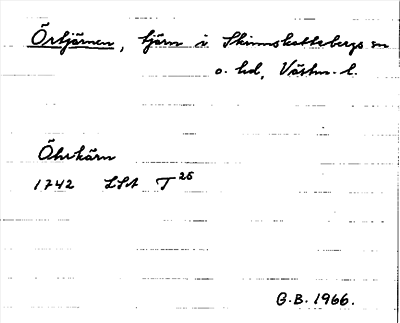 Örtjärnen, tjärn i Skinnskattebergs sn
o. hd, Västm. l.
Öhrkärn
1742 LSA T 25
G.B. 1966.